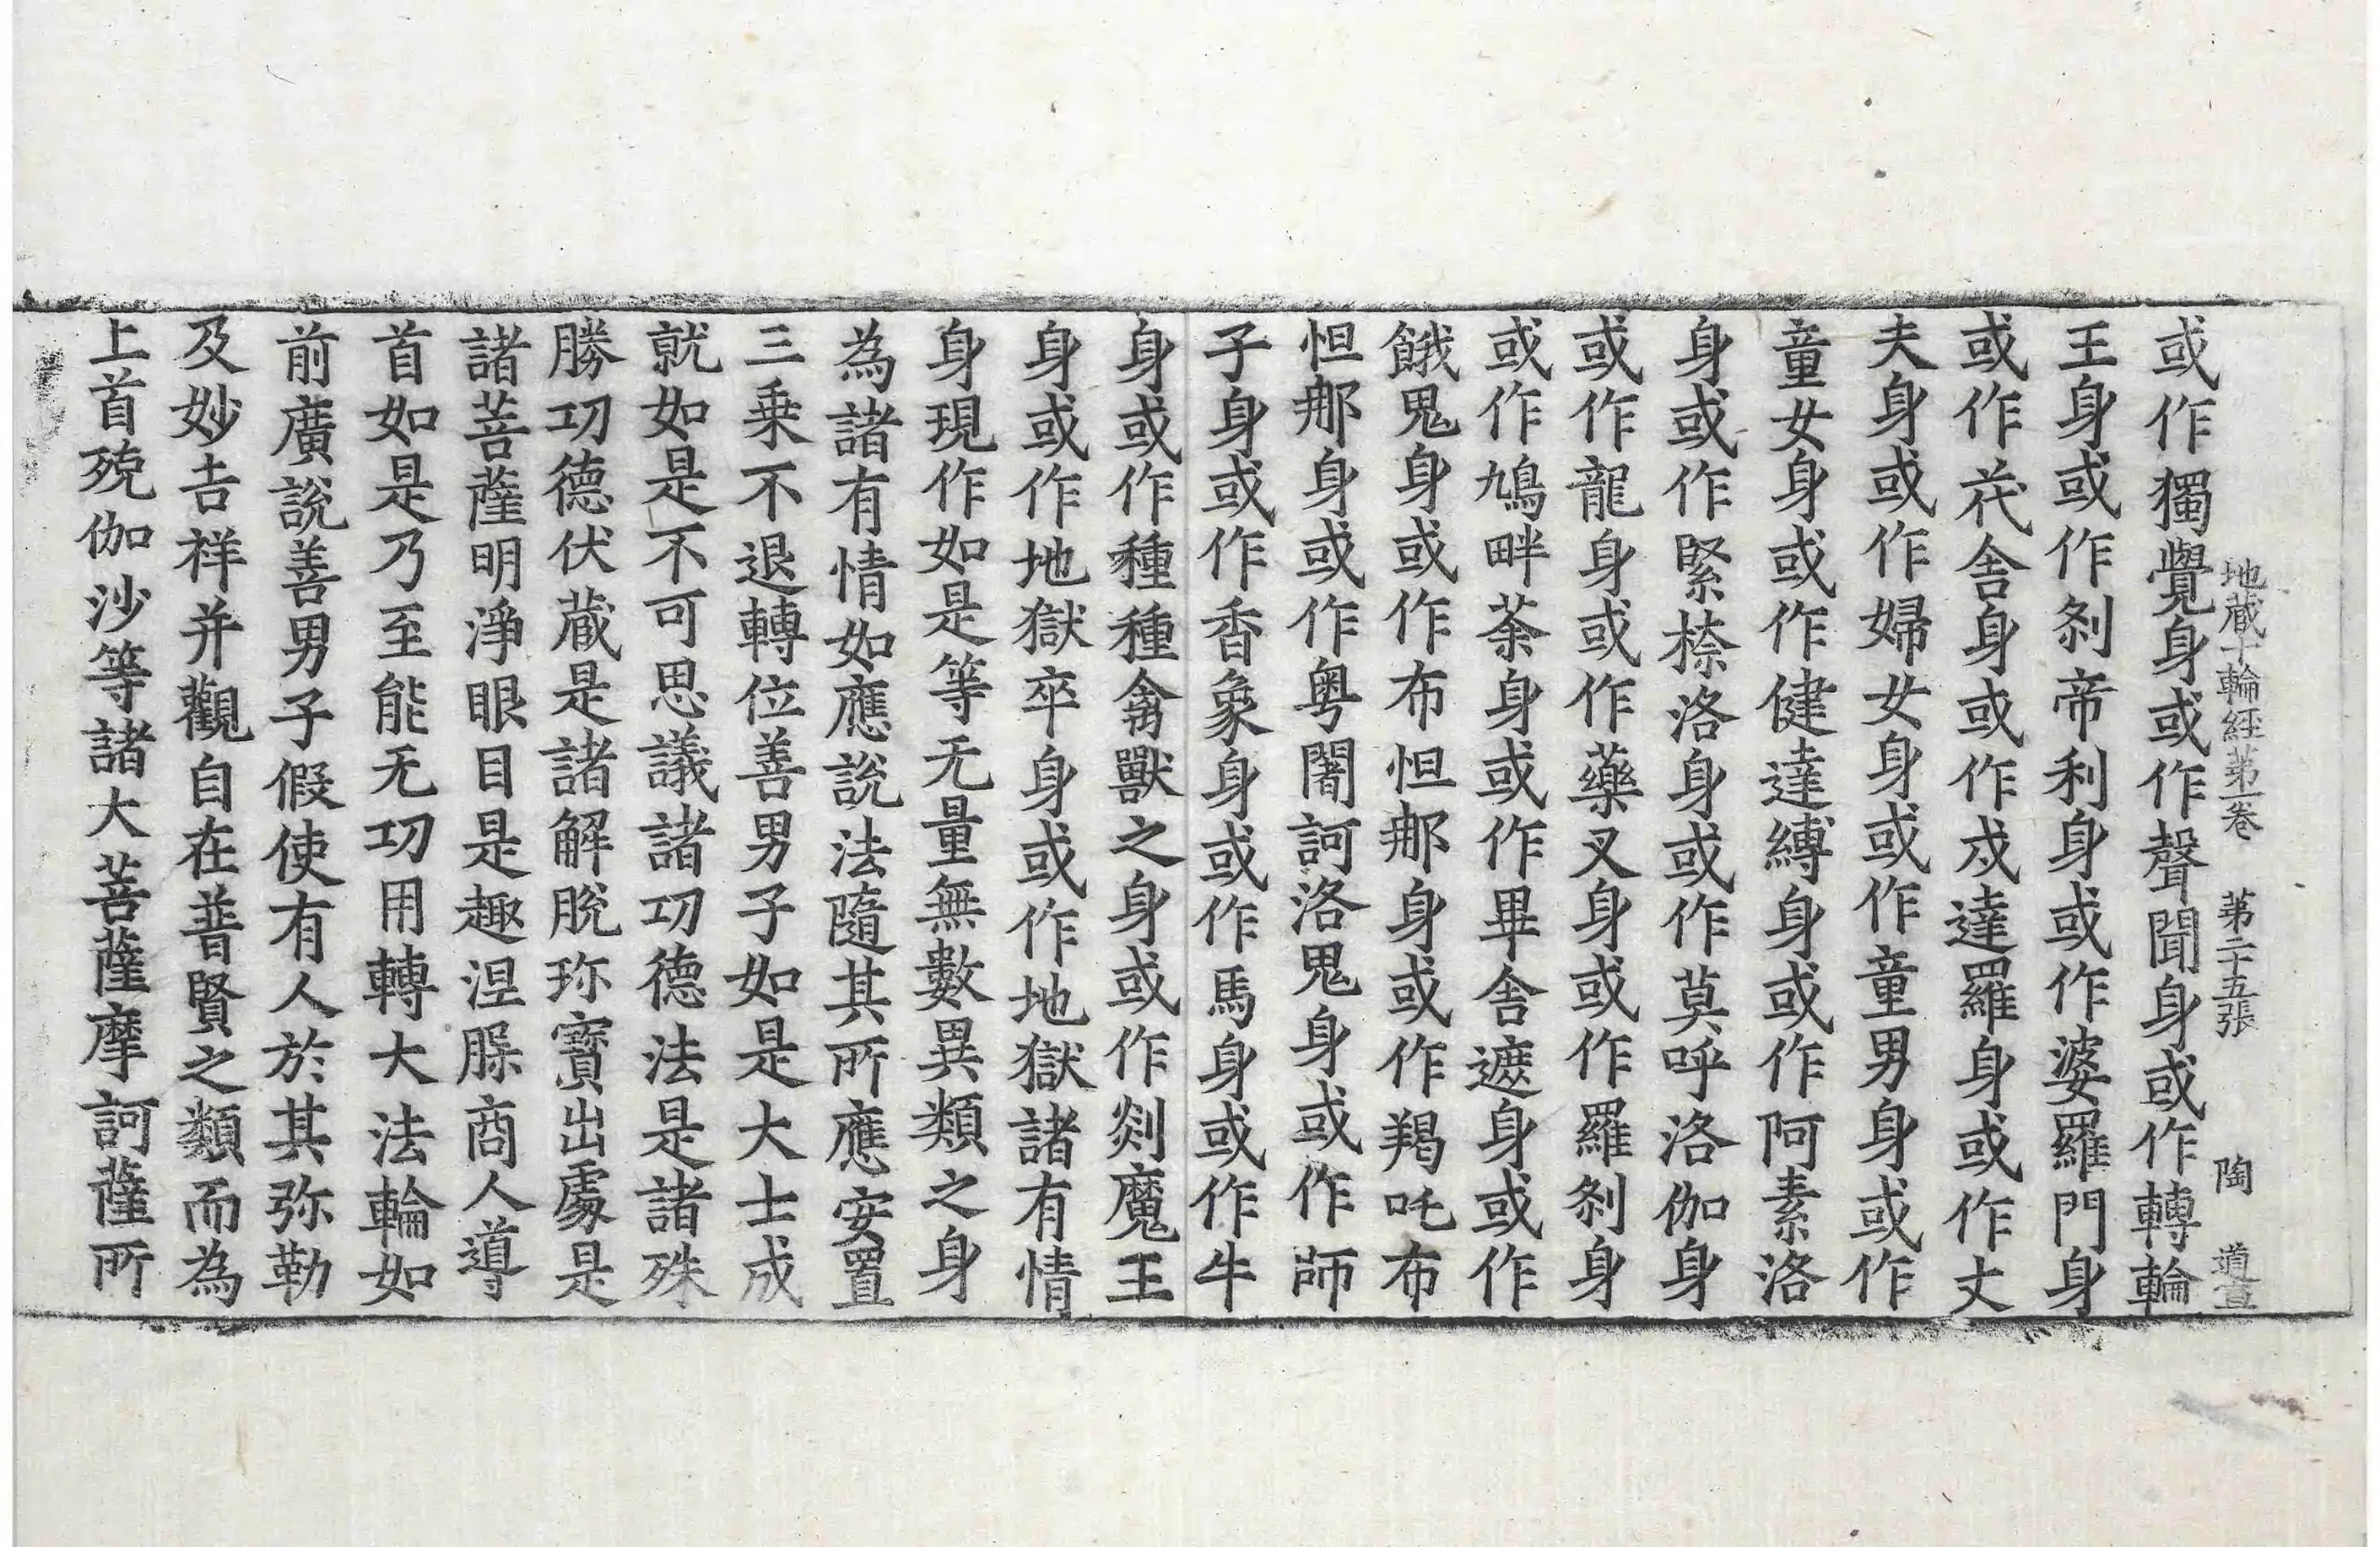 或作獨覺身或作聲聞身或作轉輪
地蔵十輪經第一卷 第二十五張 陶 道宣
王身或作剎帝利身或作婆羅門身
或作茷舍身或作戍達羅身或作丈
夫身或作婦女身或作童男身或作
童女身或作健達縛身或作阿素洛
身或作緊捺洛身或作莫呼洛伽身
或作龍身或作藥叉身或作羅剎身
或作鳩畔荼身或作畢舍遮身或作
餓鬼身或作布怛那身或作羯吒布
怛那身或作粤闍訶洛鬼身或作師
子身或作香象身或作馬身或作牛
身或作種種禽獸之身或作剡魔王
身或作地獄卒身或作地獄諸有情
身現作如是等无量無數異類之身
為諸有情如應說法隨其所應安置
三乗不退轉位善男子如是大士成
就如是不可思議諸功德法是諸殊
勝功德伏蔵是諸解脫珎寶出處是
諸菩薩明淨眼目是趣涅槃商人導
首如是乃至能无功用轉大法輪如
前廣說善男子假使有人於其弥勒
及妙吉祥并觀自在普賢之類而為
上首殑伽沙等諸大菩薩摩訶薩所